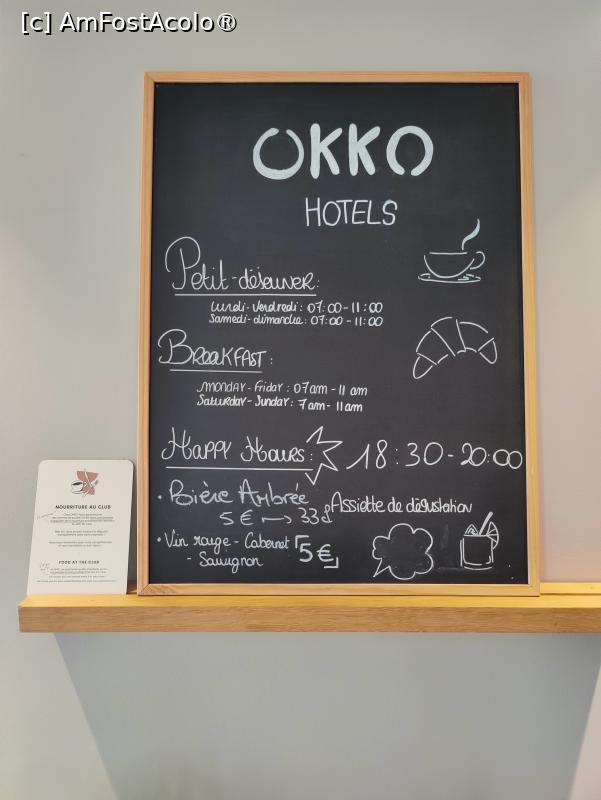 [c] AmFostAcolo®
OKKO
HOTELS
Petit-déjeuner:
Lundi-Vendredi: 07:00-11:00
Samedi-dimanche: 07:00-11:00
BREAKFAST:
MONDAY-Friday: 07am-11 am
Saturday-Sunday: 7am-11am
HAPPY HOURS: 18:30-20:00
• Bière Ambrée
5€ → 33cl
Assiette de dégustation
• Vin rouge - Cabernet
- Sauvignon
5€
NOURRITURE AU CLUB
FOOD AT THE CLUB